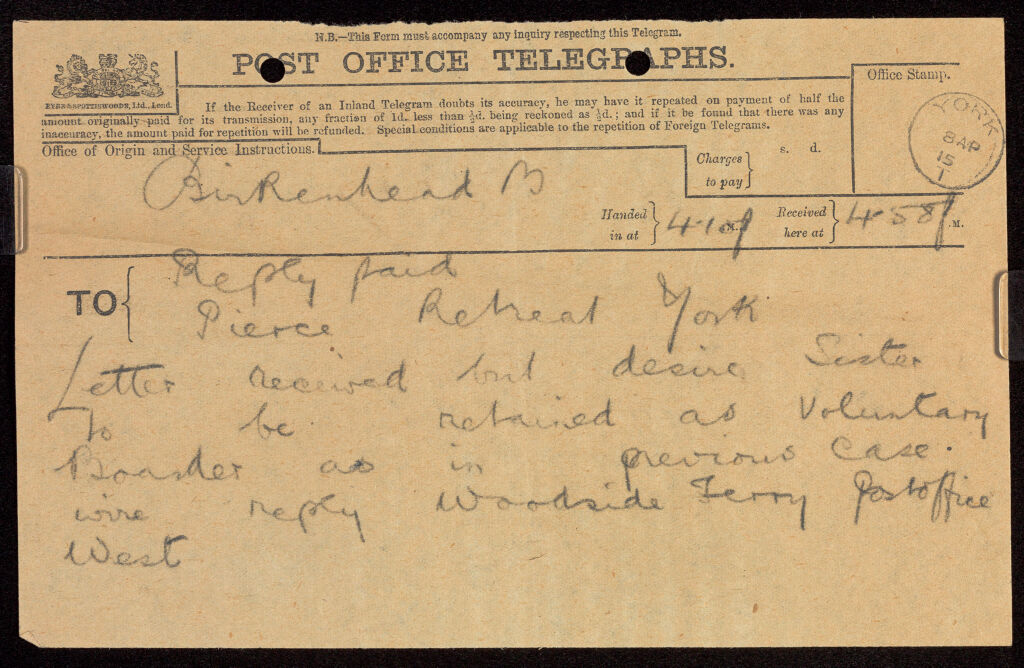 N.B.—This Form must accompany any inquiry respecting this Telegram.
POST OFFICE TELEGRAPHS.
EYRE & SPOTTISWOODE, Ltd., Lond.
If the Receiver of an Inland Telegram doubts its accuracy, he may have it repeated on payment of half the
amount originally paid for its transmission, any fraction of 1d. less than ½d. being reckoned as ½d.; and if it be found that there was any
inaccuracy, the amount paid for repetition will be refunded. Special conditions are applicable to the repetition of Foreign Telegrams.
Office of Origin and Service Instructions.
Charges
to pay
s. d.
Office Stamp.
YORK
8 AP
15
1
Birkenhead B
Handed
in at
4-10
M.
Received
here at
4-58
M.
Reply paid
TO
Pierce Retreat York
Letter received but desire Sister
To be retained as Voluntary
Boarder as in previous case.
wire reply Woodside Ferry Postoffice
West